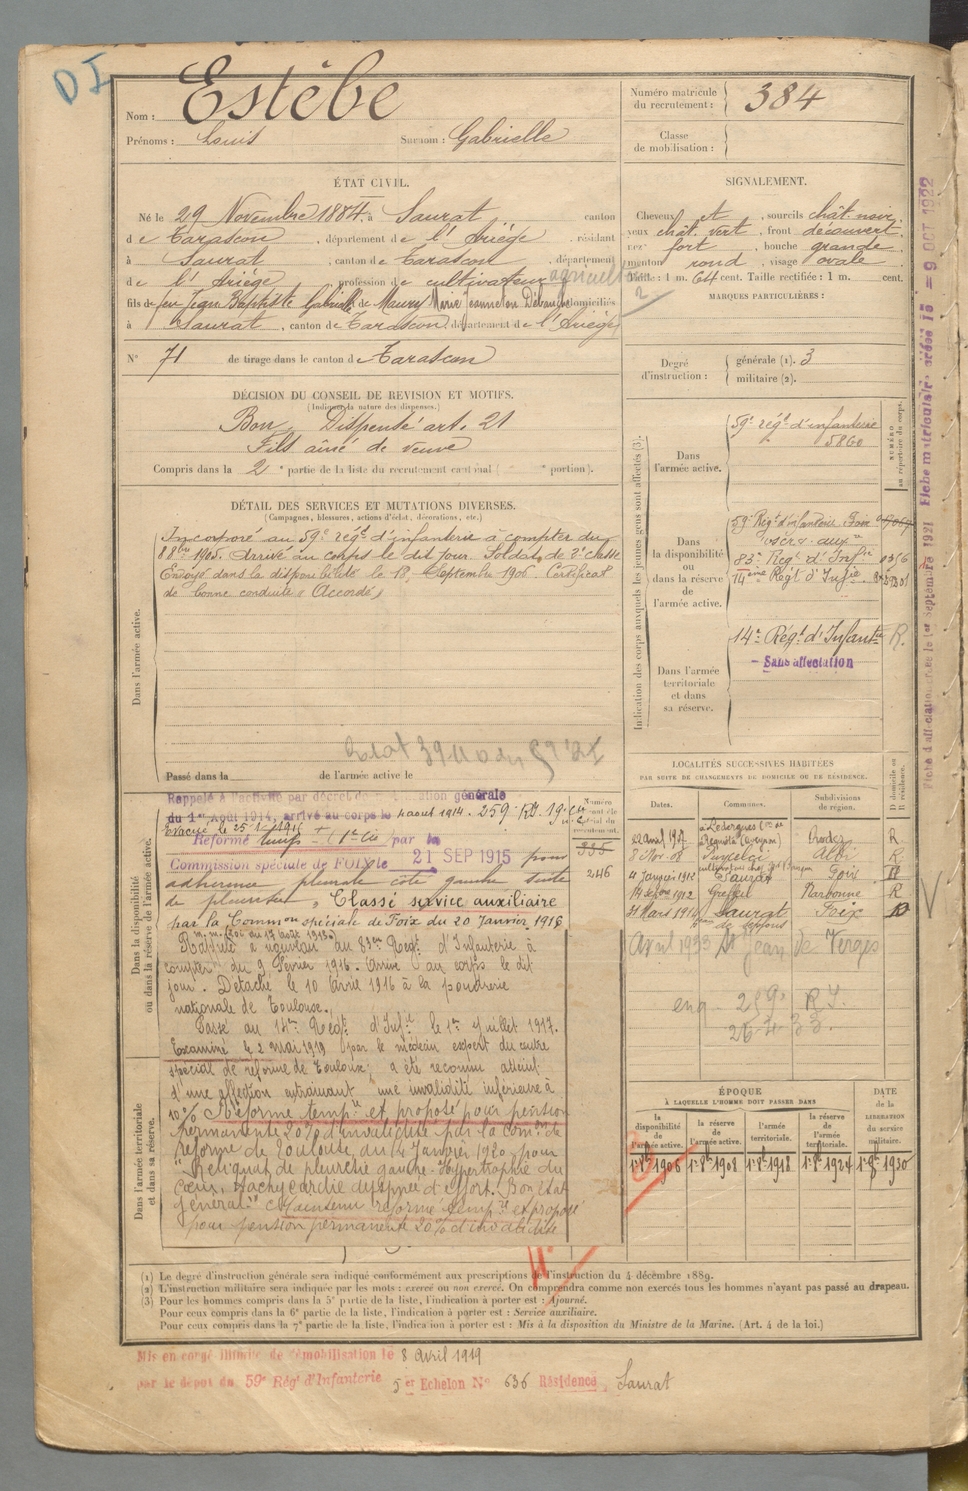 DI
Nom : Estèbe
Prénoms : Louis Surnom : Gabrielle
Numéro matricule du recrutement : 384
Classe de mobilisation :
ÉTAT CIVIL.
Né le 29 Novembre 1884, à Saurat, canton
de Tarascon, département de l'Ariège, résidant
à Saurat, canton de Tarascon, département
de l'Ariège, profession de cultivateur
fils de feu Jean Baptiste Gabrielle et de Maury Marie Jeanne domiciliés
à Saurat, canton de Tarascon, département de l'Ariège
N° 71 de tirage dans le canton de Tarascon
SIGNALEMENT.
Cheveux et, sourcils chât. noir,
yeux chât. vert, front découvert,
nez fort, bouche grande
menton rond, visage ovale
Taille : 1 m. 64 cent. Taille rectifiée : 1 m. cent.
MARQUES PARTICULIÈRES :
Degré d'instruction : générale (1). 3
militaire (2).
DÉCISION DU CONSEIL DE REVISION ET MOTIFS.
(Indiquer la nature des dispenses.)
Bon Dispensé art. 21
Fils aîné de veuve
Compris dans la 2e partie de la liste du recrutement cantonal ( e portion).
DÉTAIL DES SERVICES ET MUTATIONS DIVERSES.
(Campagnes, blessures, actions d'éclat, décorations, etc.)
Dans l'armée active.
Incorporé au 59e régt d'infanterie à compter du
8 8bre 1905. Arrivé au corps le dit jour. Soldat de 2e classe
Envoyé dans la disponibilité le 18 Septembre 1906. Certificat
de bonne conduite « Accordé »
Passé dans la de l'armée active le
Indication des corps auxquels les jeunes gens sont affectés (3).
NUMÉRO au répertoire du corps.
Dans l'armée active.
59e régt d'infanterie
5860
Dans la disponibilité ou dans la réserve de l'armée active.
59e Régt d'infanterie Foix
83e Régt d'Infie
14ème Régt d'Infie
Dans l'armée territoriale et dans sa réserve.
14e Régt d'Infantie R.
Sans affectation
Dans la disponibilité ou dans la réserve de l'armée active.
Rappelé à l'activité par décret de mobilisation générale
du 1er Août 1914, arrivé au corps le 4 aout 1914.
Réformé temp
par la
Commission spéciale de FOIX le 21 SEP 1915 pour
adhérence pleurale côté gauche suite
de pleurésie. Classé service auxiliaire
par la Common spéciale de Foix du 20 Janvier 1916
Rappelé à nouveau au 83me Régt d'Infanterie à
compter du 9 Février 1916. Arrivé au corps le dit
jour. Détaché le 10 Avril 1916 à la poudrerie
nationale de Toulouse.
Passé au 14me Régt d'Infie le 1er Juillet 1917.
Examiné le 2 mai 1919 par le médecin expert du centre
spécial de réforme de Toulouse; a été reconnu atteint
d'une affection entrainant une invalidité inférieure à
10%. Réforme tempre et proposé pour pension
permanente 20% d'invalidité par la comon de
réforme de Toulouse du 14 Janvier 1920 pour
"Reliquat de pleurésie gauche. Hypertrophie du
Cœur, tachycardie dyspnée d'effort. Bon état
général." Maintenu réforme tempre et proposé
pour pension permanente 20% d'invalidité
Dans l'armée territoriale et dans sa réserve.
335
246
LOCALITÉS SUCCESSIVES HABITÉES
PAR SUITE DE CHANGEMENTS DE DOMICILE OU DE RÉSIDENCE.
Dates. Communes. Subdivisions de région. D domicile ou R résidence.
22 avril 1907 Ledergues Rodez R
3 Nov. 08 Puycelci Albi R
4 Janvier 1912 Saurat Foix
1912 Narbonne R
31 Mars 1914 Saurat Foix D
Avril 1933 St Jean de Verges
259e R I.
ÉPOQUE
À LAQUELLE L'HOMME DOIT PASSER DANS
la disponibilité de l'armée active. la réserve de l'armée active. l'armée territoriale. la réserve de l'armée territoriale.
DATE de la LIBÉRATION DU service militaire.
1er 8bre 1906 1er 8bre 1908 1er 8bre 1918 1er 8bre 1924 1er 8bre 1930
(1) Le degré d'instruction générale sera indiqué conformément aux prescriptions de l'instruction du 4 décembre 1889.
(2) L'instruction militaire sera indiquée par les mots : exercé ou non exercé. On comprendra comme non exercés tous les hommes n'ayant pas passé au drapeau.
(3) Pour les hommes compris dans la 5e partie de la liste, l'indication à porter est : Ajourné.
Pour ceux compris dans la 6e partie de la liste, l'indication à porter est : Service auxiliaire.
Pour ceux compris dans la 7e partie de la liste, l'indication à porter est : Mis à la disposition du Ministre de la Marine. (Art. 4 de la loi.)
Mis en congé illimité de démobilisation le 8 Avril 1919
par le dépôt du 59e Régt d'Infanterie 5e Echelon N° 636 Résidence, Saurat